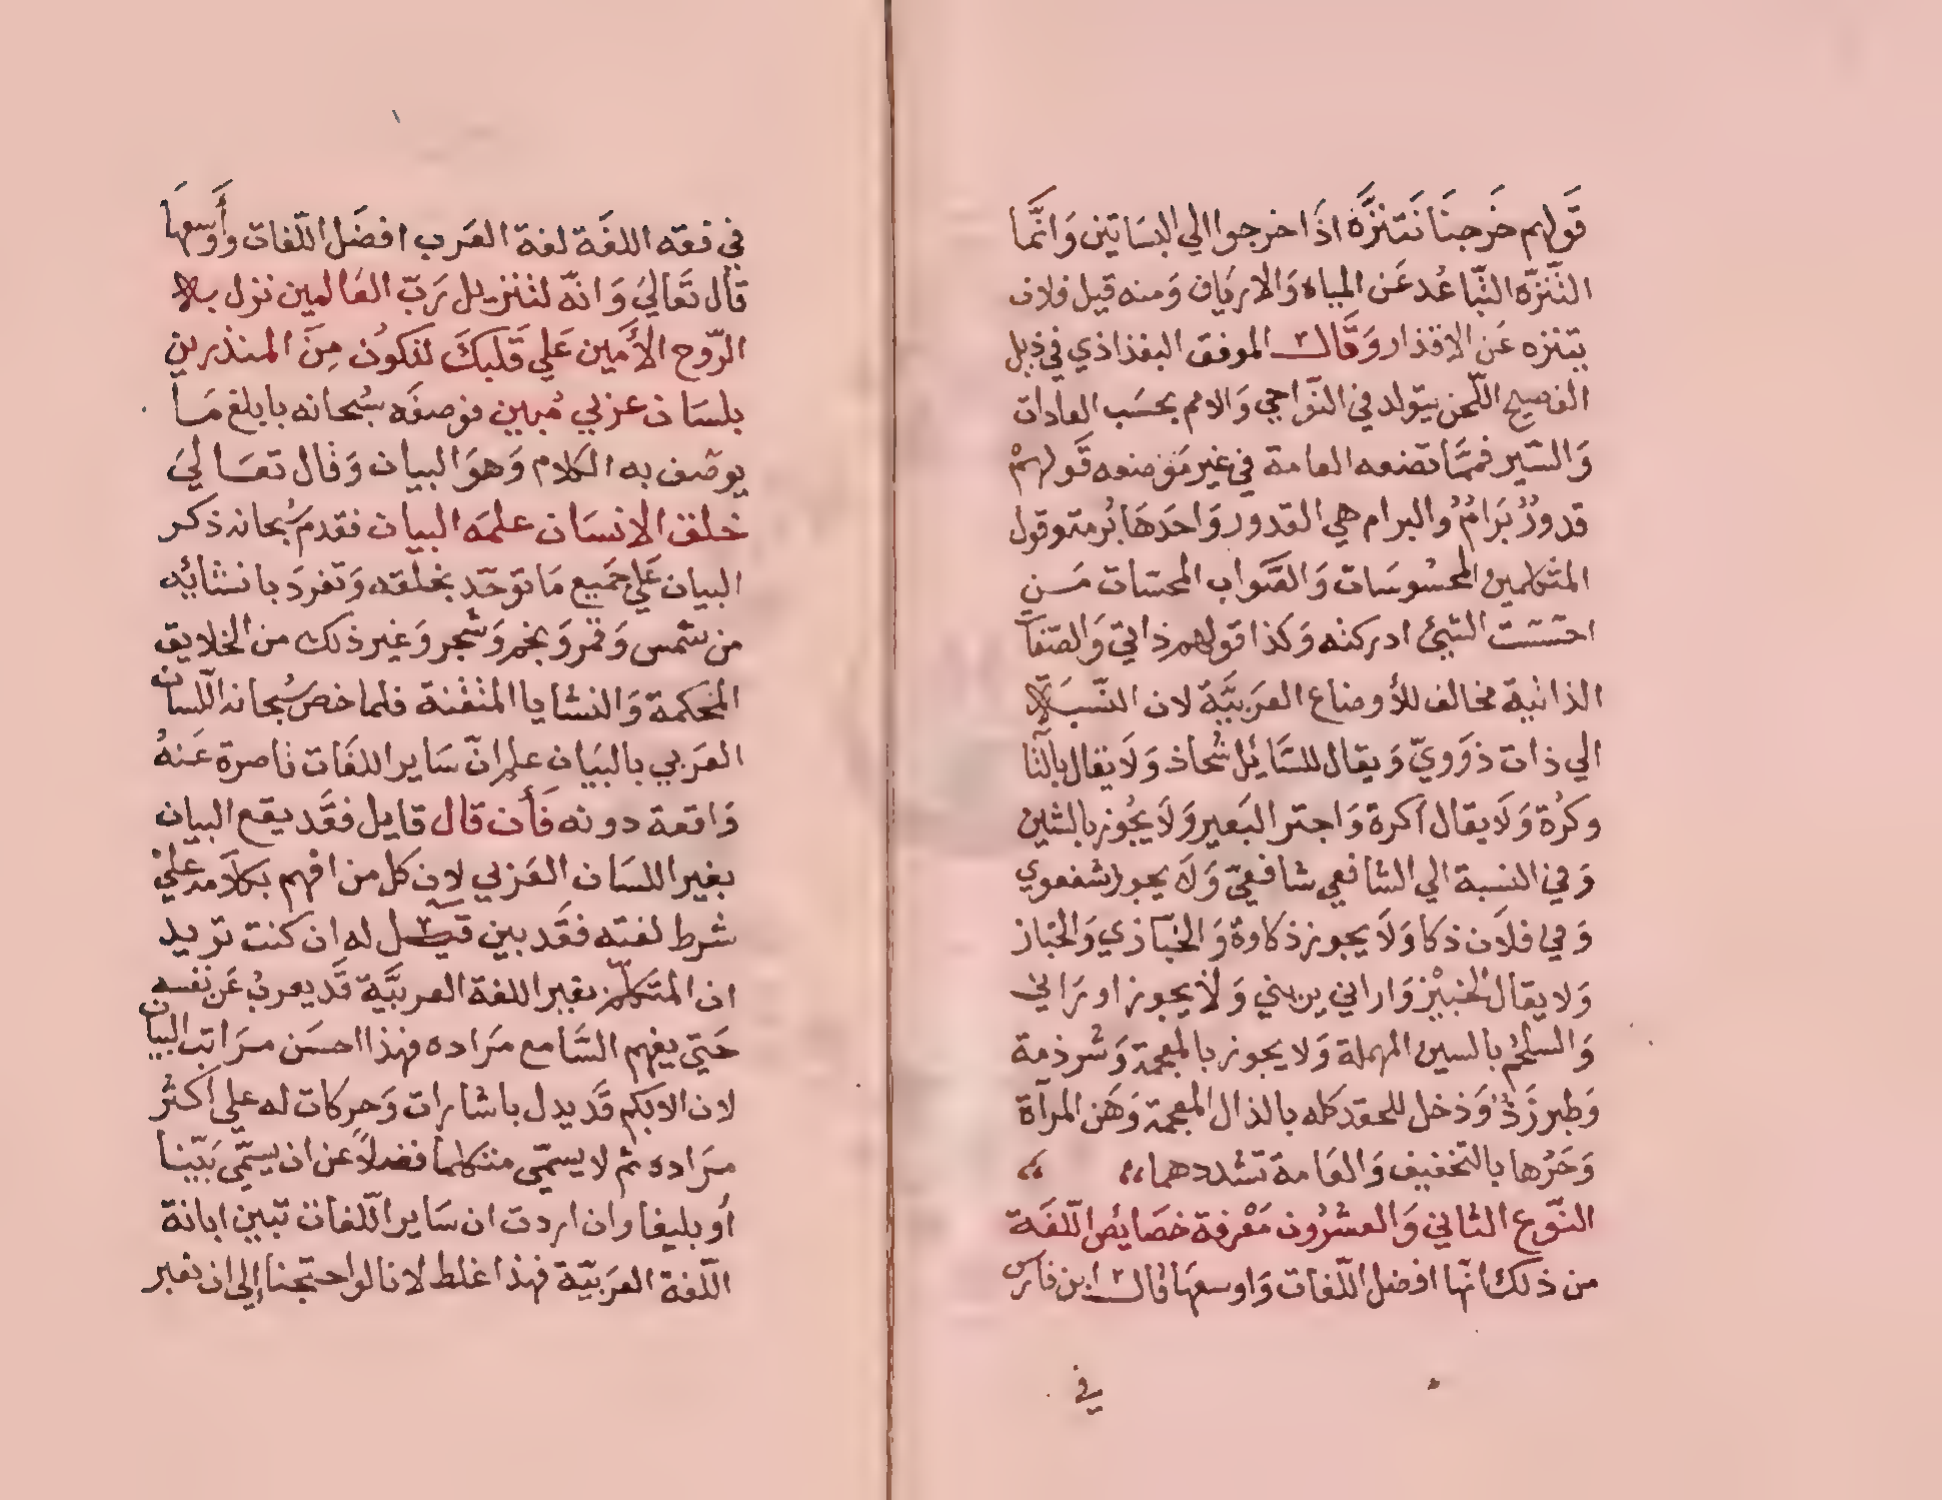 قَولهم خَرجنَا نَتنزَّه اذَا خرجوا الي البسَاتين وَانَّما
التّنزّه التّباعُد عَن المياه وَالاريَاف وَمنه قيل فلان
يتنزه عَن الاقذار وَقَال الموفق البغداذي في ذيل
الفصيح اللّحن يتولد في النّواحي وَالامم بحسَب العادات
وَالسّير فممّا تضعه العامة في غير مَوضعه قَولهمْ
قدورٌ بَرَامٌ والبرام هي القدور وَاحدَهَا بُرمة وقول
المتكلمين المحسُوسَات وَالصّوَاب المحسّات مَن
احسَست الشيئ ادركته وَكذا قولهم ذاتي وَالصّفات
الذاتية مخالف للأوضاع العَربيَّة لان النّسبَة
الي ذات ذوَويّ وَيقال للسَّائِل شُحاذ وَلَا يقال بالثا
وكرُة وَلَا يقال اكرة وَاجتر البَعير وَلَا يجُوز بالشين
وَفي النسبة الي الشافعي شافعيّ وَلَا يجوز شفعوي
وَفي فلَان ذكا وَلَا يجوز ذكاوة وَالخبّازي وَالخبّاز
وَلا يقال الخبيْز وَاراني يريني وَلَا يجوز اورَاني
وَالسلجُم بالسين المهملة وَلا يجوز بالمعجمة وَشرذمة
وَطبرزَذٌ وَذحل للحقد كله بالذال المعجمة وَهَن المرآة
وَحَرُها بالتخفيف وَالعَامة تشددهما
النّوع الثاني وَالعشرُون مَعْرفة خصَايص اللّغَة
من ذلك انّها افضل اللّغات وَاوسعهَا قال ابن فارس
في
في فقه اللغَة لغة العَرب افضَل اللّغات وأَوسعهَا
قال تَعَاليَ وَانّه لتنزيل رَبّ العَالمين نزل به
الرّوح الأَمين عَلي قَلبكَ لتكوُن مِنَ المنذرين
بلسَان عربي مُبين فوَصفَه سُبحانه بابلغ مَا
يوصَف به الكلام وَهوَ البيان وَقال تعَاليَ
خلق الانسَان علمَه البيان فقدم سُبحانه ذكر
البيان عَلي جَميع مَا توحّد بخلقه وَتفردَ بانشائه
من شمس وَقمر وَنجم وَشجر وَغير ذلك من الخلايق
المحكمة وَالنشايا المتقنة فلما خص سُبحانه اللّسان
العَربي بالبيَان علم انّ سَاير اللغَات قاصرة عَنهُ
وَاقعة دونه فَأن قال قايل فقَد يقع البيان
بغير اللسَان العَربي لان كل من افهم بكلَامه عليْ
شرط لغته فقَد بين قيل له ان كنت تريد
ان المتكلم بغير اللغة العربيَّة قَد يعربُ عَن نفسه
حَتي يفهم السَّامع مرَاده فهذا احسَن مرَاتب البيان
لان الابكم قَد يدل باشارات وَحركات له علي اكثر
مرَاده ثم لا يسمّي متكلما فضلاً عن ان يسمّي بَيّنا
أو بليغا وان اردت ان سَاير اللّغات تبين ابانة
اللّغة العَربيّة فهذا غلط لانا لو احتجنا إلي ان نعبر